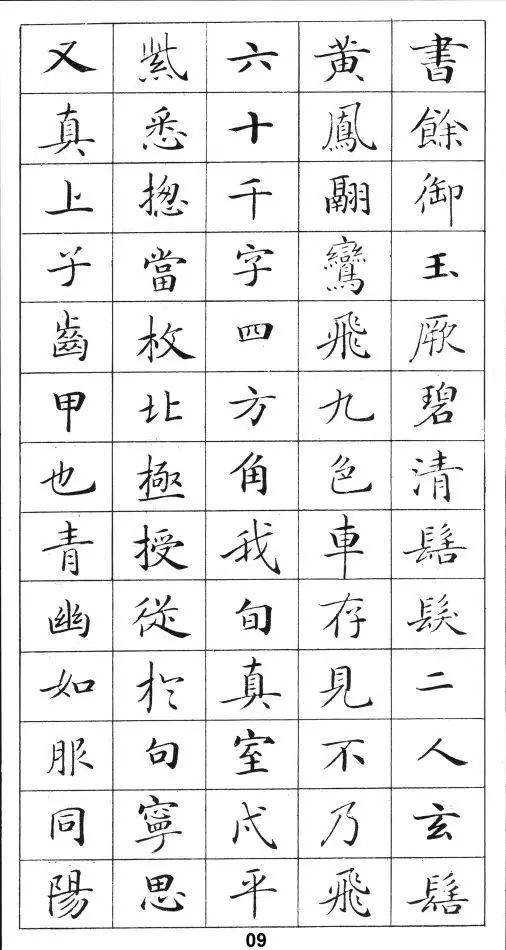 書餘御玉厥碧清髮二人玄
黃鳳翮鸞飛九色車存見不乃飛
六十千字四方角我旬真室平
紫悉揔當枚北極授從於句寧思
又真上子齒甲也青幽如服同陽
09